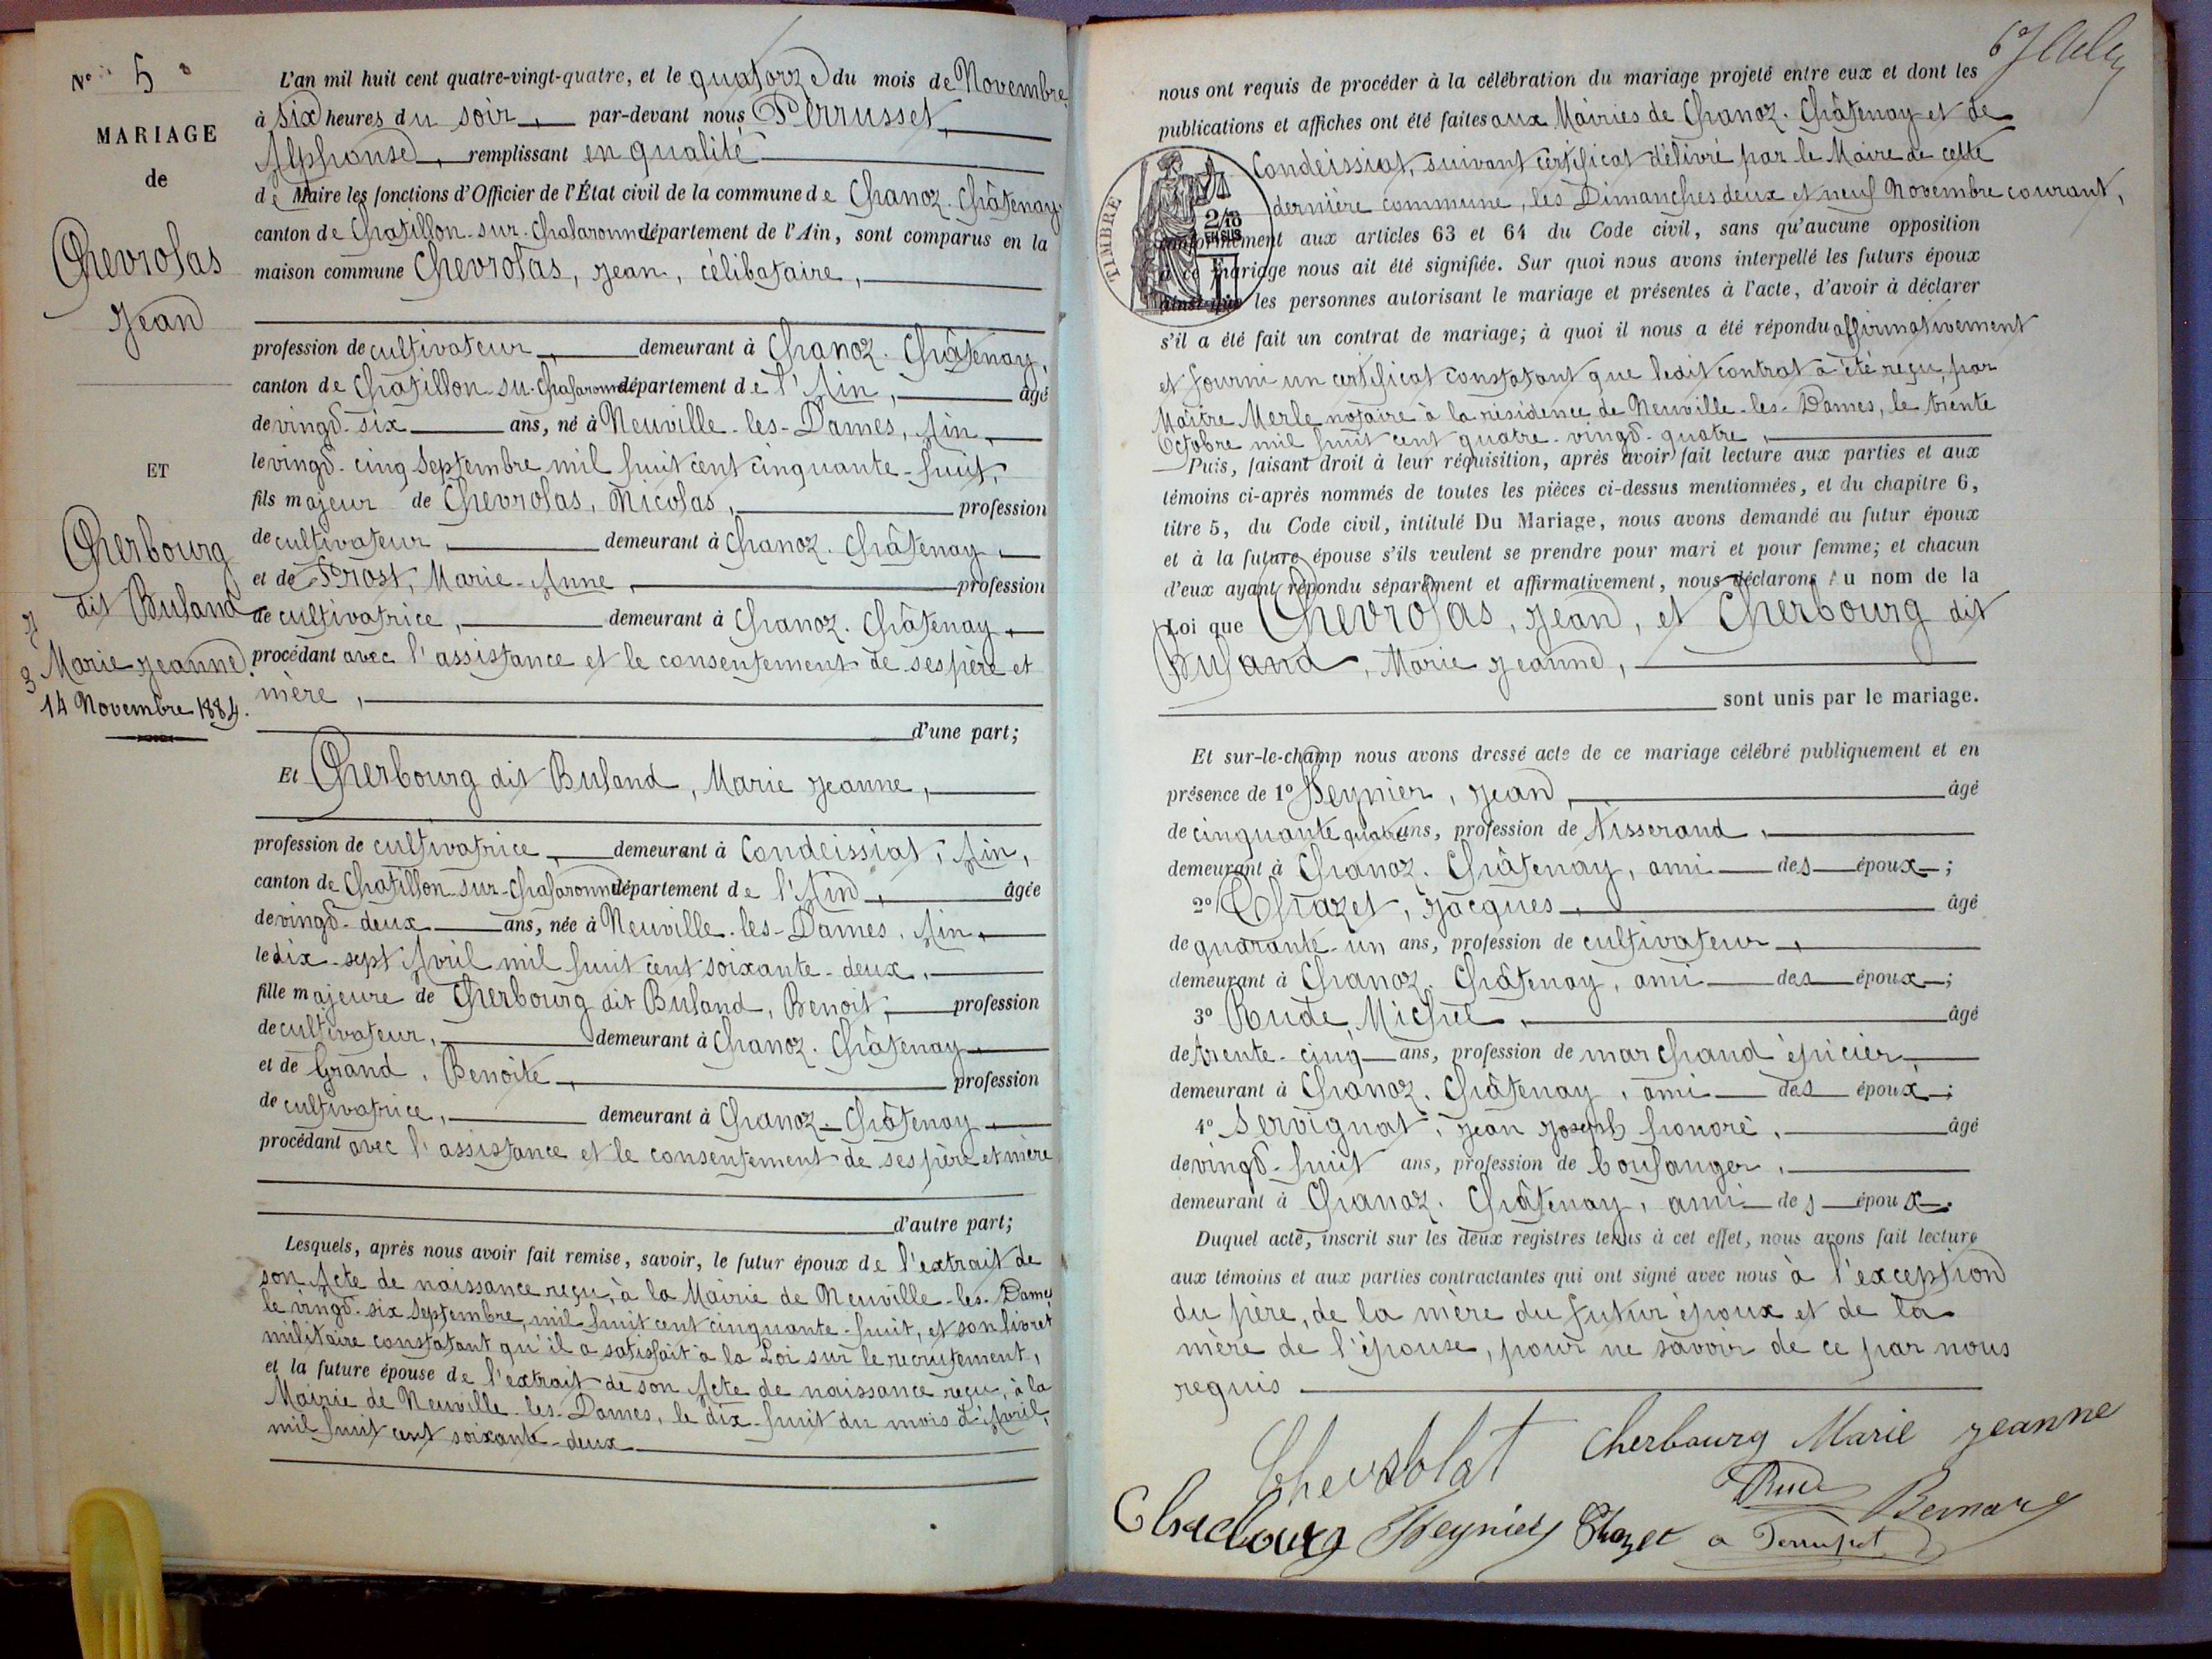 N° 5
MARIAGE
de
Chevrolas
Jean
ET
Cherbourg
dit Buland
Marie Jeanne
14 Novembre 1884.
L'an mil huit cent quatre-vingt-quatre, et le quatorze du mois de Novembre
à six heures du soir, par-devant nous Perrusset,
Alphonse, remplissant en qualité
de Maire les fonctions d'Officier de l'État civil de la commune de Chanoz-Châtenay
canton de Chatillon-sur-Chalaronne département de l'Ain, sont comparus en la
maison commune Chevrolas, Jean, célibataire,
profession de cultivateur, demeurant à Chanoz-Châtenay,
canton de Chatillon-su-Chalaronne département de l'Ain, âgé
de vingt-six ans, né à Neuville-les-Dames, Ain,
le vingt-cinq Septembre mil huit cent cinquante-huit,
fils majeur de Chevrolas, Nicolas, profession
de cultivateur, demeurant à Chanoz-Châtenay,
et de Prost, Marie-Anne, profession
de cultivatrice, demeurant à Chanoz-Châtenay,
procédant avec l'assistance et le consentement de ses père et
mère,
d'une part;
Et Cherbourg dit Buland, Marie Jeanne,
profession de cultivatrice, demeurant à Condeissiat, Ain,
canton de Chatillon-sur-Chalaronne département de l'Ain, âgée
de vingt-deux ans, née à Neuville-les-Dames, Ain,
le dix-sept Avril mil huit cent soixante-deux,
fille majeure de Cherbourg dit Buland, Benoit, profession
de cultivateur, demeurant à Chanoz-Châtenay,
et de Grand, Benoite, profession
de cultivatrice, demeurant à Chanoz-Châtenay,
procédant avec l'assistance et le consentement de ses père et mère
d'autre part;
Lesquels, après nous avoir fait remise, savoir, le futur époux de l'extrait de
son Acte de naissance reçu, à la Mairie de Neuville-les-Dames
le vingt-six Septembre, mil huit cent cinquante-huit, et son livret
militaire constatant qu'il a satisfait à la Loi sur le recrutement,
et la future épouse de l'extrait de son Acte de naissance reçu, à la
Mairie de Neuville-les-Dames, le dix-huit du mois d'Avril,
mil huit cent soixante-deux
nous ont requis de procéder à la célébration du mariage projeté entre eux et dont les
publications et affiches ont été faites aux Mairies de Chanoz-Châtenay et de
Condeissiat, suivant certificat délivré par le Maire de cette
dernière commune, les Dimanches deux et neuf Novembre courant,
conformément aux articles 63 et 64 du Code civil, sans qu'aucune opposition
à ce mariage nous ait été signifiée. Sur quoi nous avons interpellé les futurs époux
ainsi que les personnes autorisant le mariage et présentes à l'acte, d'avoir à déclarer
s'il a été fait un contrat de mariage; à quoi il nous a été répondu affirmativement
et fourni un certificat constatant que ledit contrat a été reçu, par
Maître Merle notaire à la résidence de Neuville-les-Dames, le trente
Octobre mil huit cent quatre-vingt-quatre,
Puis, faisant droit à leur réquisition, après avoir fait lecture aux parties et aux
témoins ci-après nommés de toutes les pièces ci-dessus mentionnées, et du chapitre 6,
titre 5, du Code civil, intitulé Du Mariage, nous avons demandé au futur époux
et à la future épouse s'ils veulent se prendre pour mari et pour femme; et chacun
d'eux ayant répondu séparément et affirmativement, nous déclarons au nom de la
Loi que Chevrolas, Jean, et Cherbourg dit
Buland, Marie Jeanne,
sont unis par le mariage.
Et sur-le-champ nous avons dressé acte de ce mariage célébré publiquement et en
présence de 1° Peynier, Jean, âgé
de cinquante quatre ans, profession de Tisserand,
demeurant à Chanoz-Châtenay, ami des époux;
2° Chazet, Jacques, âgé
de quarante-un ans, profession de cultivateur,
demeurant à Chanoz-Châtenay, ami des époux;
3° Rude, Michel, âgé
de trente-cinq ans, profession de marchand épicier
demeurant à Chanoz-Châtenay, ami des époux;
4° Servignat, Jean Joseph honoré, âgé
de vingt-huit ans, profession de boulanger,
demeurant à Chanoz-Châtenay, ami des époux.
Duquel acte, inscrit sur les deux registres tenus à cet effet, nous avons fait lecture
aux témoins et aux parties contractantes qui ont signé avec nous à l'exception
du père, de la mère du futur époux et de la
mère de l'épouse, pour ne savoir de ce par nous
requis
TIMBRE
2/10
EN SUS
Chevrolat Cherbourg Marie Jeanne
Rude
Cherbourg Peynier Chazet a Perrusset